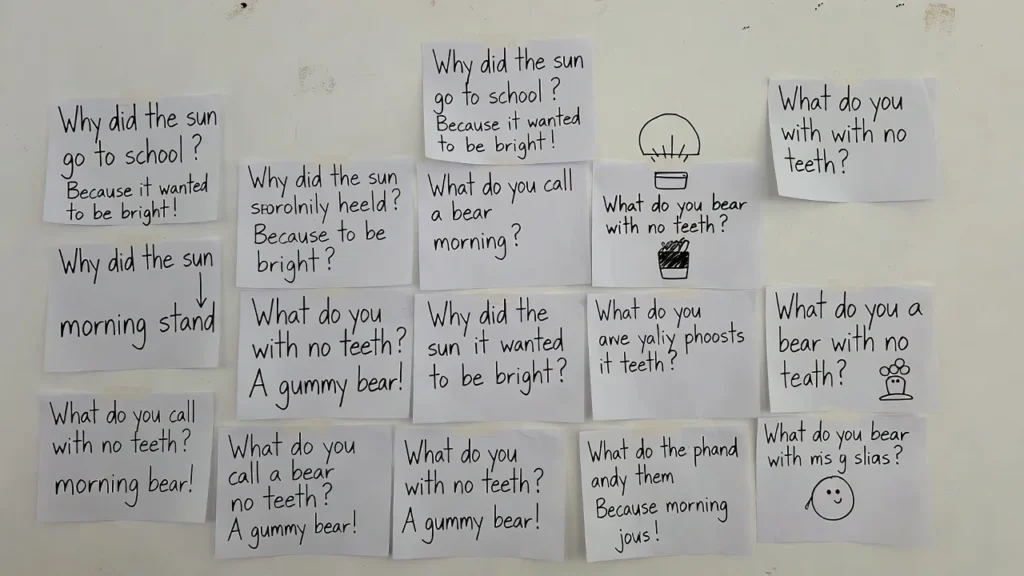 Why did the sun
go to school?
Because it wanted
to be bright!
Why did the sun
go to school?
Because it wanted
to be bright!
What do you
with with no
teeth?
Why did the sun
heeld?
Because to be
bright?
What do you call
a bear
morning?
What do you bear
with no teeth?
Why did the sun
morning stand
What do you
with no teeth?
A gummy bear!
Why did the
sun it wanted
to be bright?
What do you
awe yaliy phoosts
it teeth?
What do you a
bear with no
teath?
What do you call
with no teeth?
morning bear!
What do you
call a bear
no teeth?
A gummy bear!
What do you
with no teeth?
A gummy bear!
What do the phand
andy them
Because morning
jous!
What do you bear
with mis g slias?